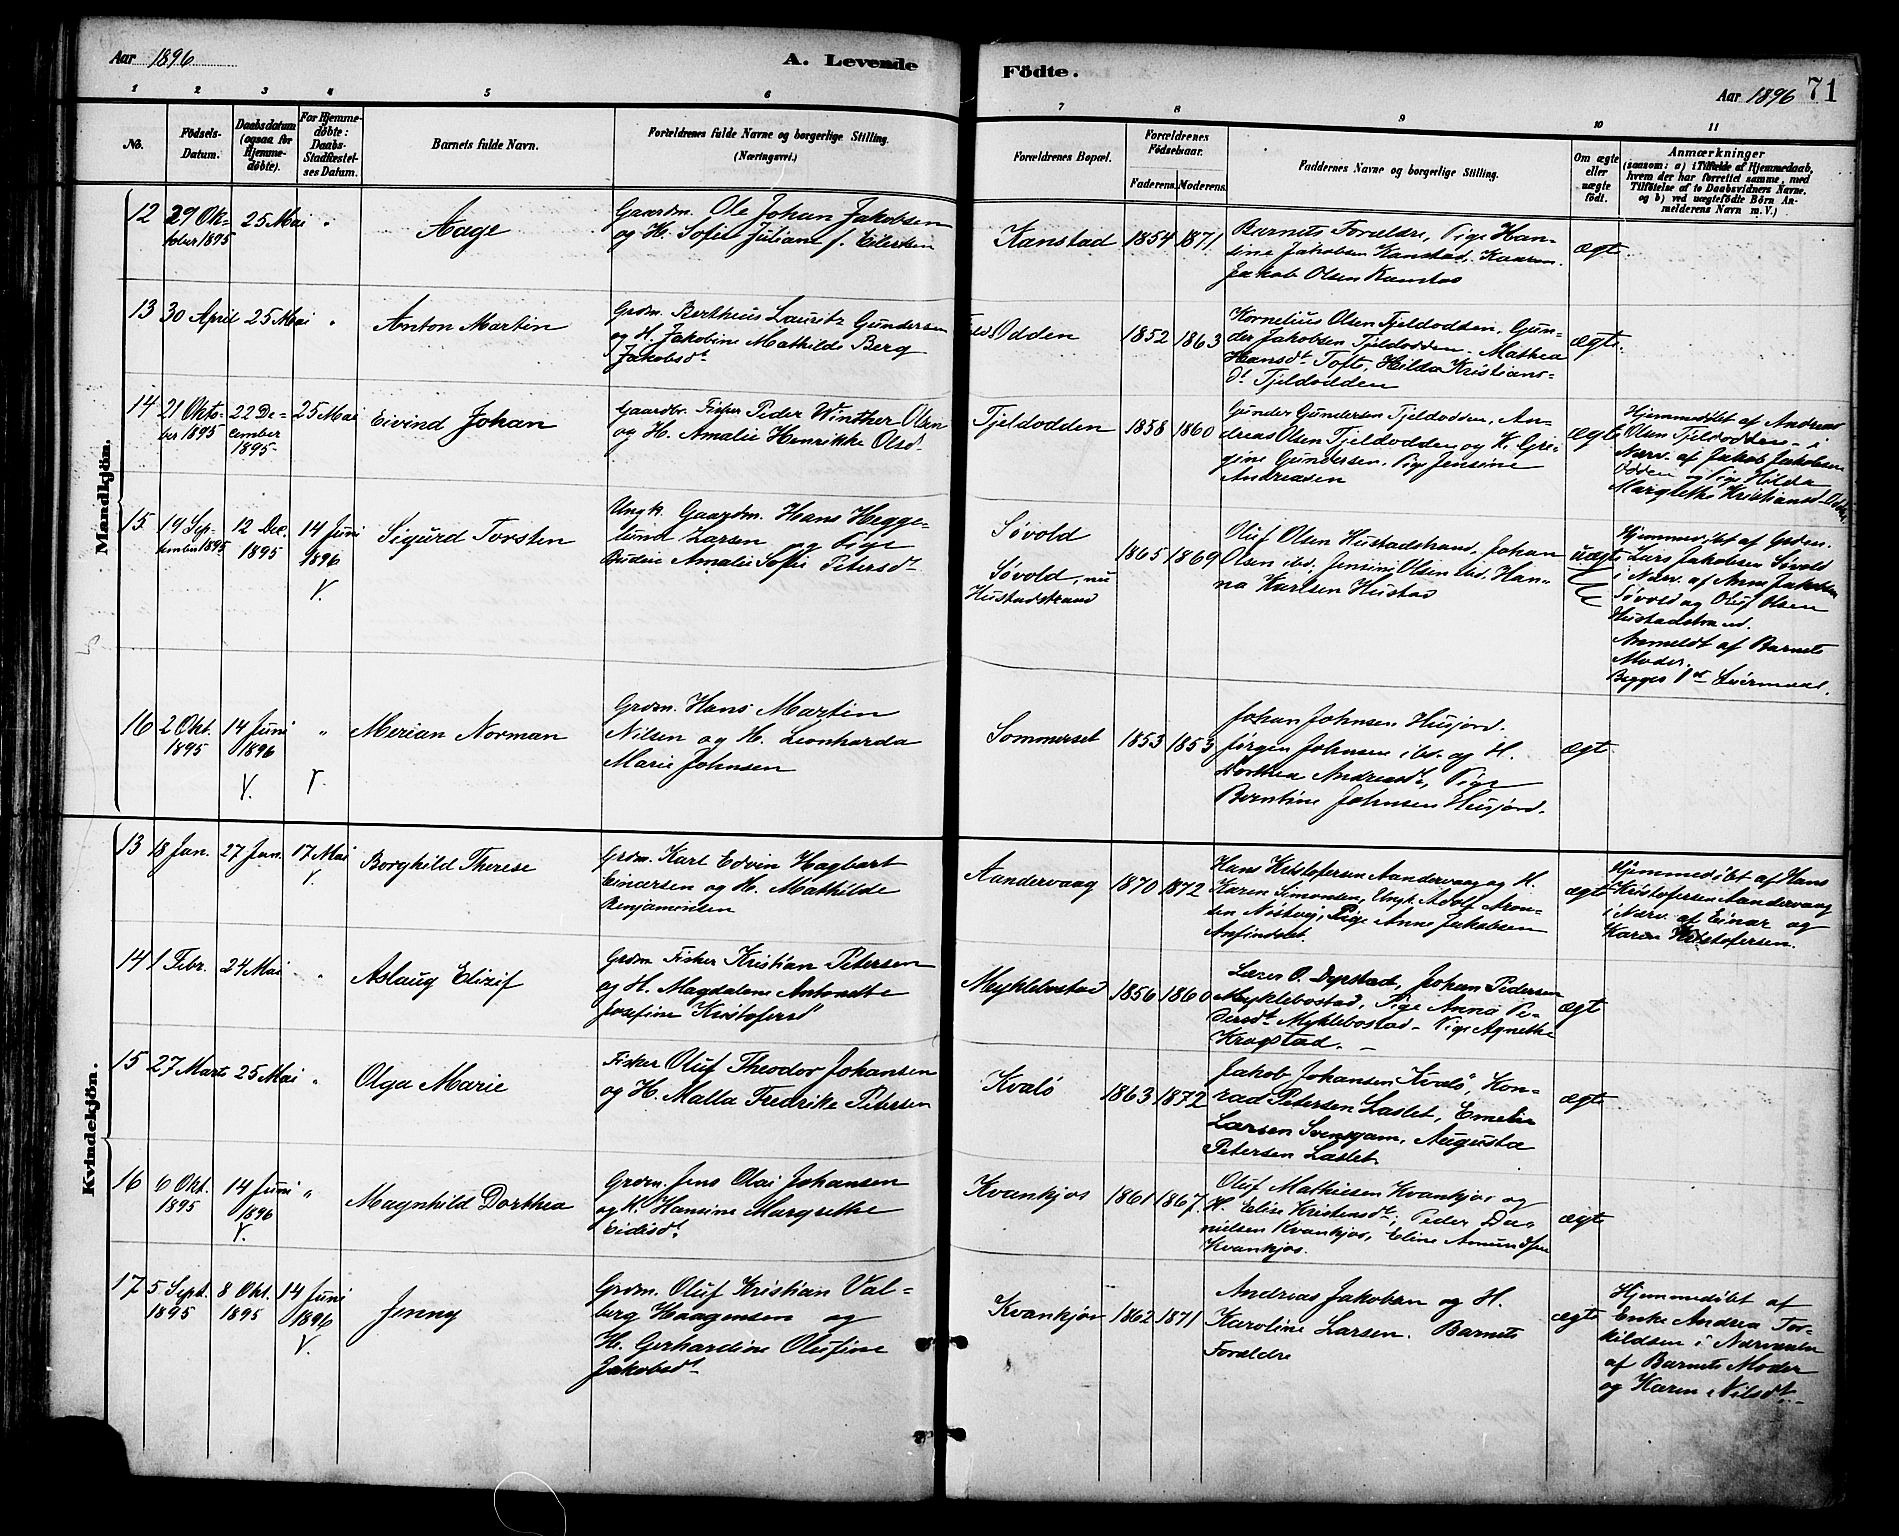 Aar 1896
A. Levende
Födte.
Aar 1896
71
1
2
3
4
5
6
7
8
9
10
11
No.
Födsels-
Datum.
Daabsdatum
(ogsaa for
Hjemme-
døbte).
For Hjemme-
døbte:
Daabs-
Stadfæstel-
ses Datum.
Barnets fulde Navn.
Forældrenes fulde Navne og borgerlige Stilling.
(Næringsvei.)
Forældrenes Bopæl.
Forældrenes
Födselsaar.
Faderens.
Moderens.
Faddernes Navne og borgerlige Stilling.
Om ægte
eller
uægte
födt.
Anmærkninger
(saasom: a) i Tilfælde af Hjemmedaab,
hvem der har forrettet samme, med
Tilføielse af to Daabsvidners Navne,
og b) ved uægtefødte Börn An-
melderens Navn m. V.)
Mandkjön.
12
29 Ok-
tober 1895
25 Mai
"
Aage
Gaardm. Ole Johan Jakobsen
og H. Sofie Juliane f. Eilertsen
Kanstad
1854
1871
Barnets Forældre, Pige Han-
sine Jakobsen Kanstad,
Jakob Olsen Kanstad
ægte.
13
30 April
25 Mai
"
Anton Martin
Grdm. Bertheus Lauritz Gundersen
og H. Jakobine Mathilde Berg
Jakobsdt
Odden
1852
1863
Kornelius Olsen Tjeldodden, Gun-
der Jakobsen Tjeldodden, Mathea
Hansdt Tofte, Hilda Kristians-
dt Tjeldodden
ægte.
14
21 Okto-
ber 1895
22 De-
cember
1895-
25 Mai
Eivind Johan
Gaardbr. Fisker Peder Winther Olsen
og H. Amalie Henrikke Olsd.
Tjeldodden
1858
1860
Gunder Gundersen Tjeldodden, An-
dreas Olsen Tjeldodden og H. Gri-
gine Gundersen, Pige Jensine
Andreasen
ægte
Hjemmedøbt af Andreas
Olsen Tjeldodden - i
Nærv. af Jakob Jakobsen
Odden og Pige Hilda
Margrethe Kristiansd. Odden
15
19 Sep-
tember 1895
12 Dec.
1895
14 Juni
1896
V.
Sigurd Torsten
Ungk. Gaardm. Hans Hegge-
lund Larsen og Pige
Budeie Amalie Sofie Petersdt
Søvold
Søvold, nu
Hustadstrand
1865
1869
Oluf Olsen Hustadstrand, Johan
Olsen ibd, Jensine Olsen ibd. Han-
na Karlsen Hustad
uægte
Hjemmedøbt af Grdm.
Lars Jakobsen Søvold
i Nærv. af Anne Jakobsen
Søvold og Oluf Olsen
Hustadstrand.
Anmeldt af Barnets
Moder.
Begges 1ste Leiermaal.
16
2 Okt.
1895
14 Juni
1896
V.
"
V.
Merian Norman
Grdm. Hans Martin
Nilsen og H. Leonharda
Marie Johnsen
Sommerset
1853
1853
Johan Johnsen Husjord.
Jørgen Johnsen ibd. og H.
Dorthea Andreasdt, Pige
Berntine Johnsen Husjord.
ægte
Kvindekjön.
13
18 Jan.
27 Jan.
17 Mai
V.
Borghild Therese
Grdm. Karl Edvin Hagbart
Einarsen og H. Mathilde
Benjaminsen
Aandervaag
1870
1872
Hans Kristofersen Aandervaag og H.
Karen Simonsen, Ungk. Adolf Aron-
sen Nøstvig, Pige Anne Jakobsen
Anfindslet.
ægte
Hjemmedøbt af Hans
Kristofersen Aandervaag
i Nærv. af Einar og
Karen Kristofersen.
14
1 Febr.
24 Mai
"
Aslaug Elizif
Grdm. Fisker Kristian Petersen
og H. Magdalene Antondte
Josefine Kristofersd
Myklebostad
1856
1860
Lærer O. Dyrstad, Johan Pedersen
Myklebostad, Pige Anna Pe-
dersdt Myklebostad - Pige Agnethe
Krogstad. -
ægte
15
27 Marts
25 Mai
"
Olga Marie
Fisker Oluf Theodor Johansen
og H. Malla Fredrike Petersen
Kvalø
1863
1872
Jakob Johansen Kvalø, Kon-
rad Petersen Laslet, Emelie
Larsen Svensgam, Augusta
Petersen Laslet.
ægte
16
6 Okt.
1895
14 Juni
1896
V.
"
Magnhild Dorthea
Grdm. Jens Olai Johansen
og H. Hansine Margrethe
Eidisdt.
Kvankjos
1861
1867.
Oluf Mathisen Kvankjos og
H. Elise Kristensdt, Peder Da-
nielsen Kvankjos, Eline Amundsen
Kvankjos.
ægte
17
5 Sept.
1895
8 Okt.
1895
14 Juni
1896
V.
Jenny
Grdm. Oluf Kristian Val-
berg Haagensen og
H. Gerhardine Olufine
Jakobsdt.
Kvankjos
1862
1871
Andreas Jakobsen og H.
Karoline Larsen. Barnets
Forældre
ægte
Hjemmedøbt af
Enke Andrea Tor-
kildsen i Nærværelse
af Barnets Moder
og Karen Nilsdt.